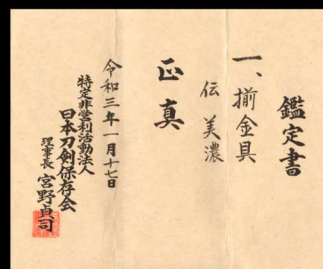 鑑定書
一、揃金具
伝 美濃
正真
令和三年一月十七日
特定非営利活動法人
日本刀剣保存会
理事長 宮野貞司